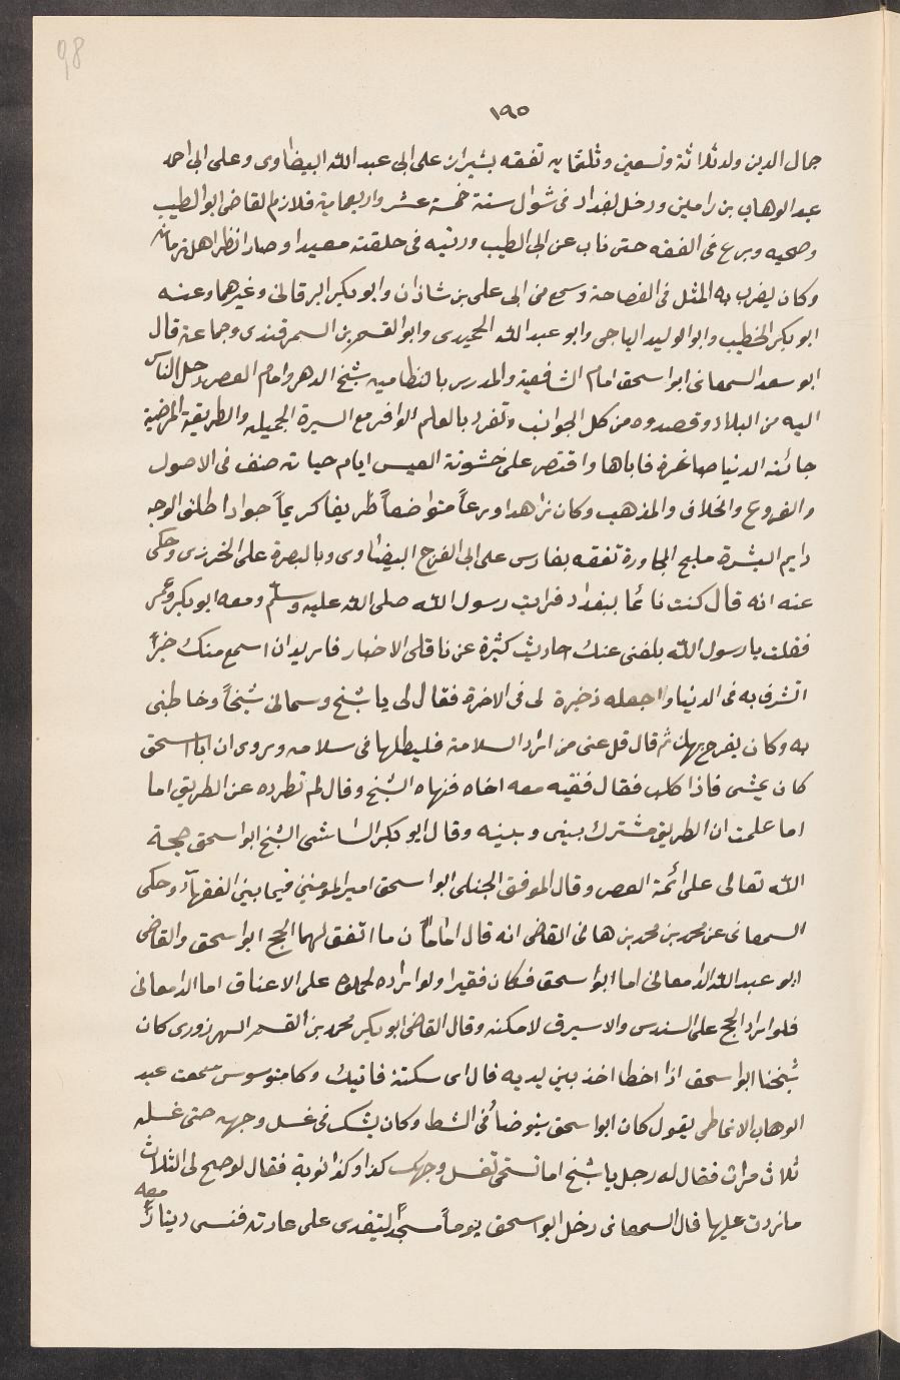 98
١٩٥
جمال الدين ولد ثلاثة وتسعين وثلثمايه تفقه بشيراز على ابى عبد الله البيضاوى وعلى ابى احمد
عبد الوهاب بن رامين ودخل بغداد فى شوال سنة خمسة عشر واربعماية فلازم القاضى ابو الطيب
وصحبه وبرع فى الفقه حتى ناب عن ابى الطيب ورتبه فى حلقته معيدا وصار انظر اهل زمانه
وكان يضرب به المثل فى الفصاحة وسمع من ابى على بن شاذان وابو بكر البرقانى وغيرهما وعنه
ابو بكر الخطيب وابو الوليد الباجى وابو عبد الله الحميدى وابو القسم بن السمرقندى وجماعة قال
ابو سعد السمعانى ابو اسحق امام الشافعية والمدرس بالنظاميه شيخ الدهر وامام العصر رحل الناس
اليه من البلاد وقصدوه من كل الجوانب وتفرد بالعلم الوافر مع السيرة الجميله والطريقة المرضية
جائته الدنيا صاغرة فاباها واقتصر على خشونة العيس ايام حياته صنف فى الاصول
والفروع والخلاف والمذهب وكان زاهدا ورعاً متواضعاً ظريفا كريماً جوادا طلق الوجه
دايم البشرة مليح المجاورة تفقه بفارس على ابى الفرج البيضاوى وبالبصرة على الخرزى وحكى
عنه انه قال كنت نائما ببغداد فرايت رسول الله صلى الله عليه وسلم ومعه ابو بكر وعمر
فقلت يا رسول الله بلغنى عنك احاديث كثيرة عن ناقلى الاخبار فاريد ان اسمع منك خبراً
اتشرف به فى الدنيا واجعله ذخيرة لى فى الاخرة فقال لى يا شيخ وسمانى شيخاً وخاطبنى
به وكان يفرح بهذا ثم قال قل عنى من اراد السلامة فليطلبها فى سلامه ويروى ان ابا اسحق
كان يمشى فاذا كلب فقال فقيه معه اخاه فنهاه الشيخ وقال لم تطرده عن الطريق اما
اما علمت ان الطريق مشترك بينى وبينه وقال ابو بكر الشاشى الشيخ ابو اسحق حجة
الله تعالى على ائمة العصر وقال الموفق الحنبلى ابو اسحق امير المومنين فيما بين الفقهآء وحكى
السمعانى عن محمد بن محمد بن هانى القاضى انه قال امامان ما اتفق لهما الحج ابو اسحق والقاضى
ابو عبد الله الدامعانى اما ابو اسحق فكان فقيرا ولو اراده لحملوه على الاعناق اما الدامعانى
فلو اراد الحج على السندس والاسبرق لامكنه وقال القاضى ابو بكر محمد بن القسم السهرزورى كان
شيخنا ابو اسحق اذا اخطا احد بين يديه قال اى سكتة فاتتك وكا متوسوس سمعت عبد
الوهاب الانماطى يقول كان ابو اسحق يتوضأ فى الشط وكان يشك فى غسل وجهه حتى غسله
ثلاث مرات فقال له رجل يا شيخ اما تستحى تغسل وجهك كذا وكذا نوبة فقال لوصح لى الثلاث
مازدت عليها قال السمعانى دخل ابو اسحق يوماً مسجداً ليتغدى على عادته فنسى ديناراً معه